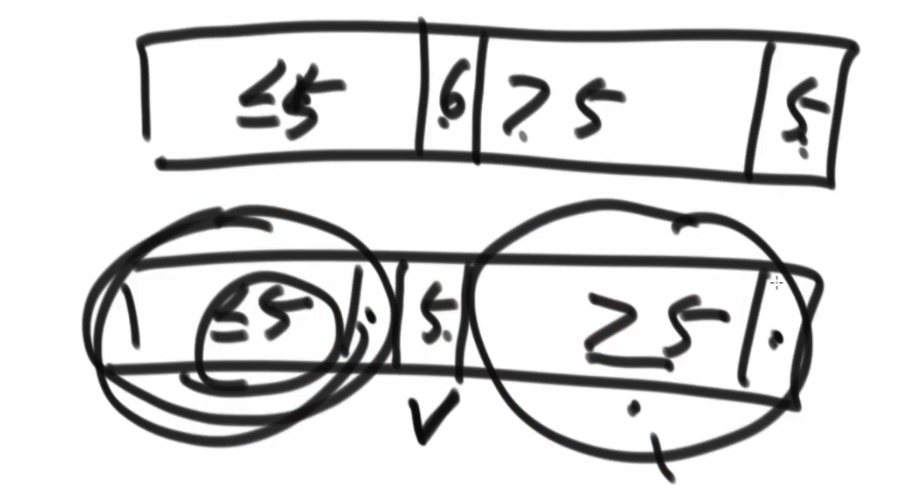 ≤5 6 >5 5
≤5 5 ≥5